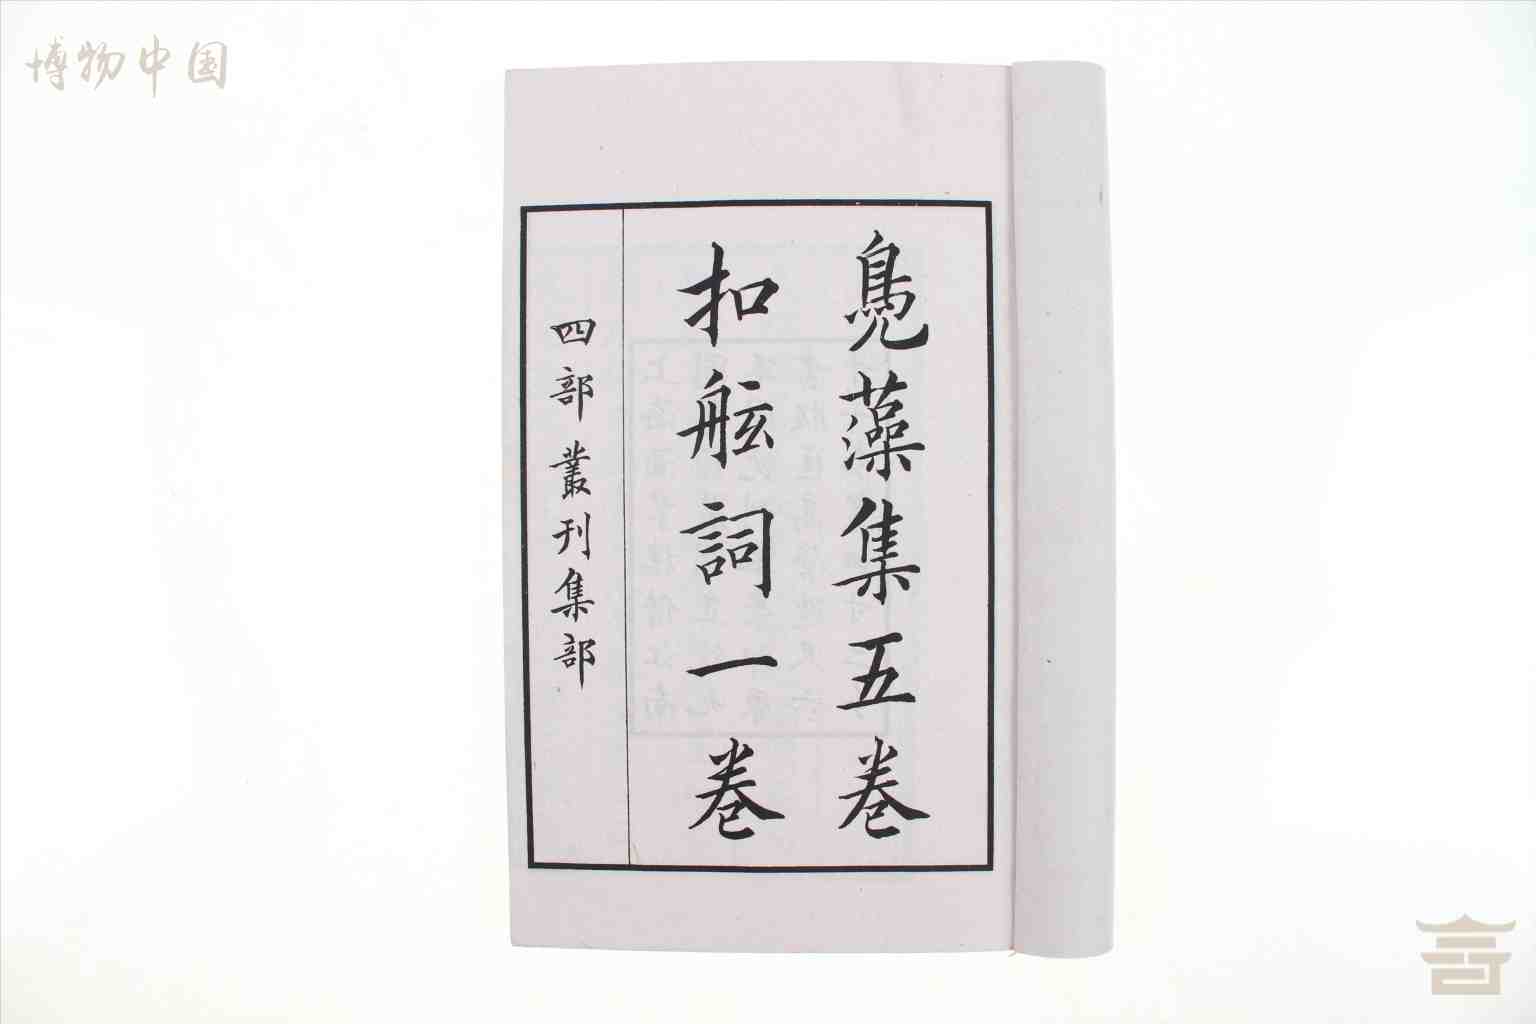 博物中国
鳧藻集五卷
扣舷詞一卷
四部叢刊集部